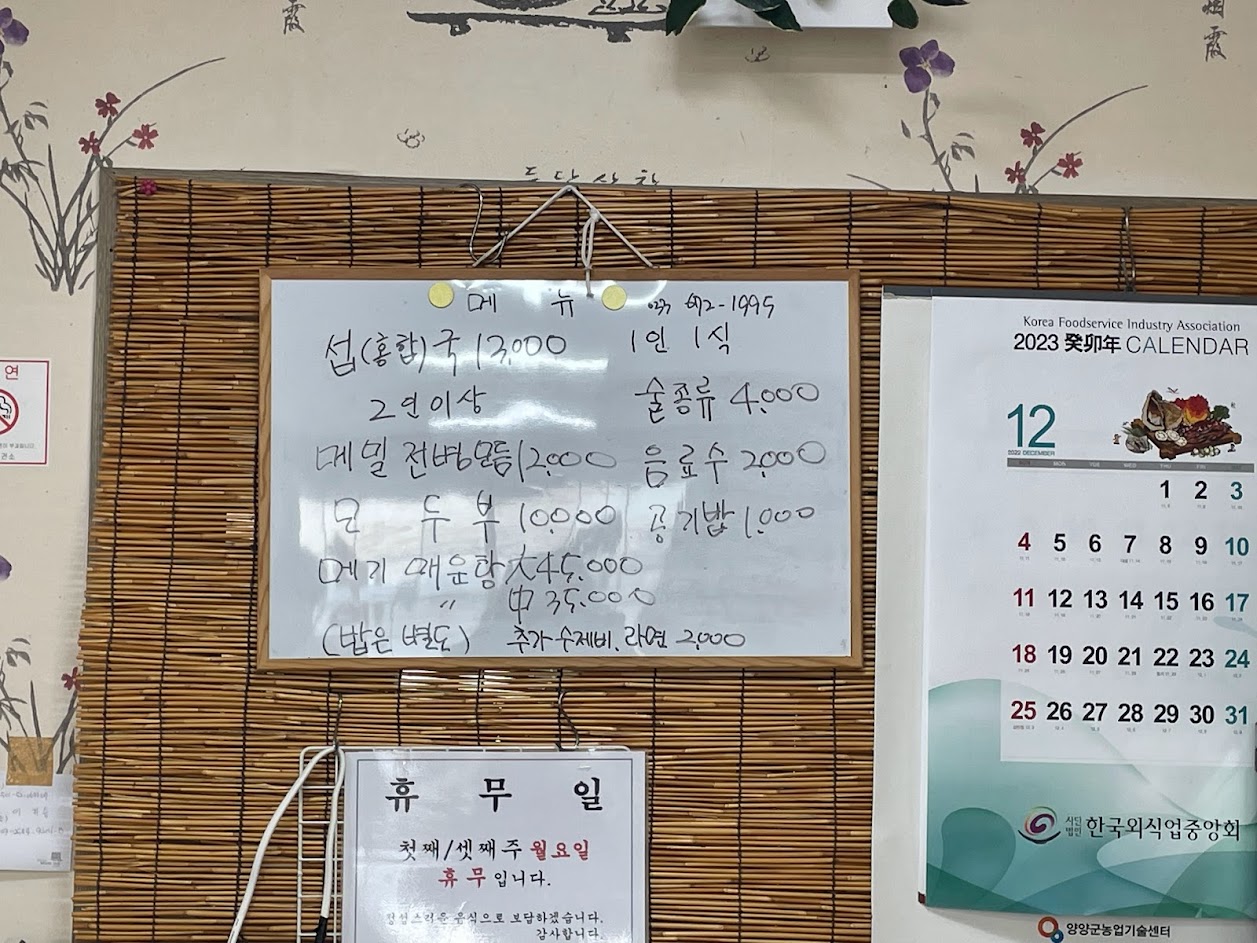 메 뉴 033 672-1995
섭(홍합)국 13,000 1인 1식
2인이상 술종류 4,000
메밀 전병모듬 12,000 음료수 2,000
모 두 부 10000 공기밥 1,000
메기 매운탕 大 45,000
〃 中 35,000
(밥은 별도) 추가 수제비, 라면 2,000
휴 무 일
첫째/셋째 주 월요일
휴 무 입니다.
정성스러운 음식으로 보답하겠습니다.
감사합니다.
Korea Foodservice Industry Association
2023 癸卯年 CALENDAR
12
2022 DECEMBER
MON TUE WED THU FRI
1 2 3
4 5 6 7 8 9 10
11 12 13 14 15 16 17
18 19 20 21 22 23 24
25 26 27 28 29 30 31
사단법인 한국외식업중앙회
양양군농업기술센터
연
霞
霞